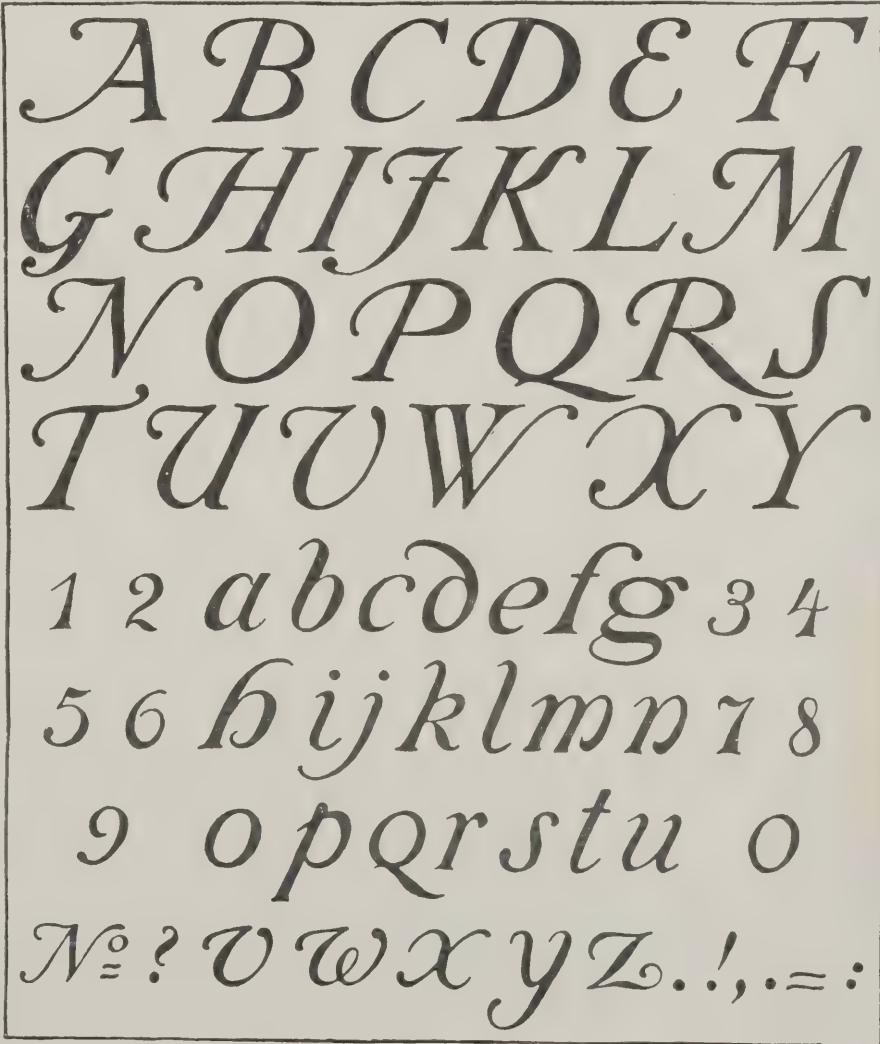 A B C D E F
G H I J K L M
N O P Q R S
T U V W X Y
1 2 a b c d e f g 3 4
5 6 h i j k l m n 7 8
9 o p q r s t u 0
Nº ? v w x y z . ! , . = :